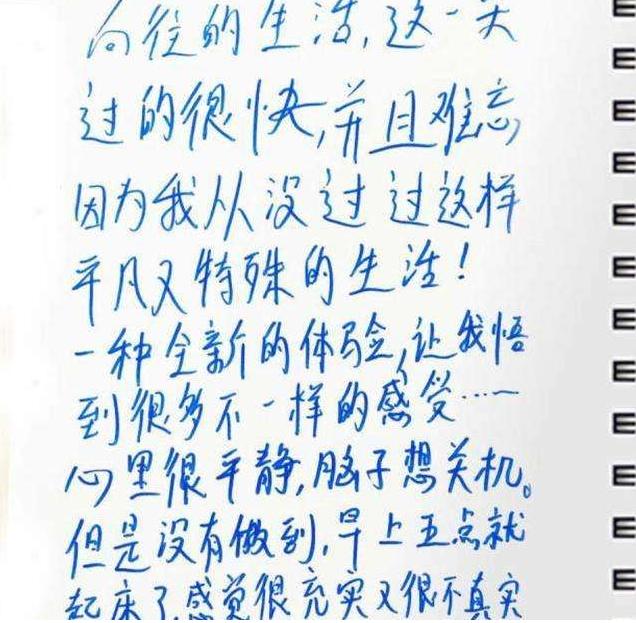 向往的生活,这一天
过的很快,并且难忘,
因为我从没过过这样
平凡又特殊的生活!
一种全新的体验,让我悟
到很多不一样的感受……
心里很平静,脑子想关机。
但是没有做到,早上五点就
起床了,感觉很充实又很不真实